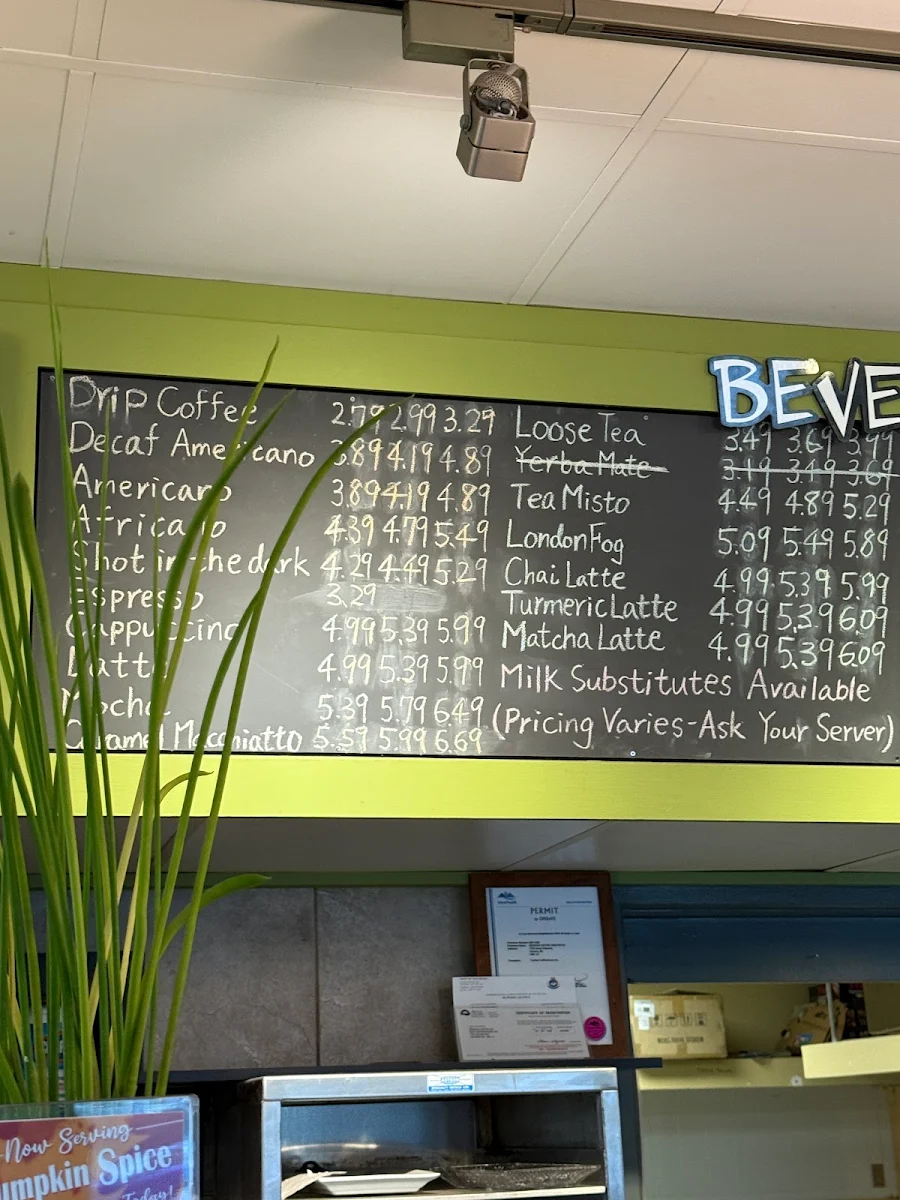 BEVE
Drip Coffee 2.79 2.99 3.29
Decaf Americano 3.89 4.19 4.89
Americano 3.89 4.19 4.89
Africano 4.39 4.79 5.49
Shot in the dark 4.29 4.49 5.29
Espresso 3.29
Cappuccino 4.99 5.39 5.99
Latte 4.99 5.39 5.99
Mocha 5.39 5.79 6.49
Caramel Macchiatto 5.59 5.99 6.69
Loose Tea 3.49 3.69 3.99
Yerba Mate 3.19 3.49 3.69
Tea Misto 4.49 4.89 5.29
London Fog 5.09 5.49 5.89
Chai Latte 4.99 5.39 5.99
Turmeric Latte 4.99 5.39 6.09
Matcha Latte 4.99 5.39 6.09
Milk Substitutes Available
(Pricing Varies-Ask Your Server)
PERMIT
Now Serving
umpkin Spice
Today!